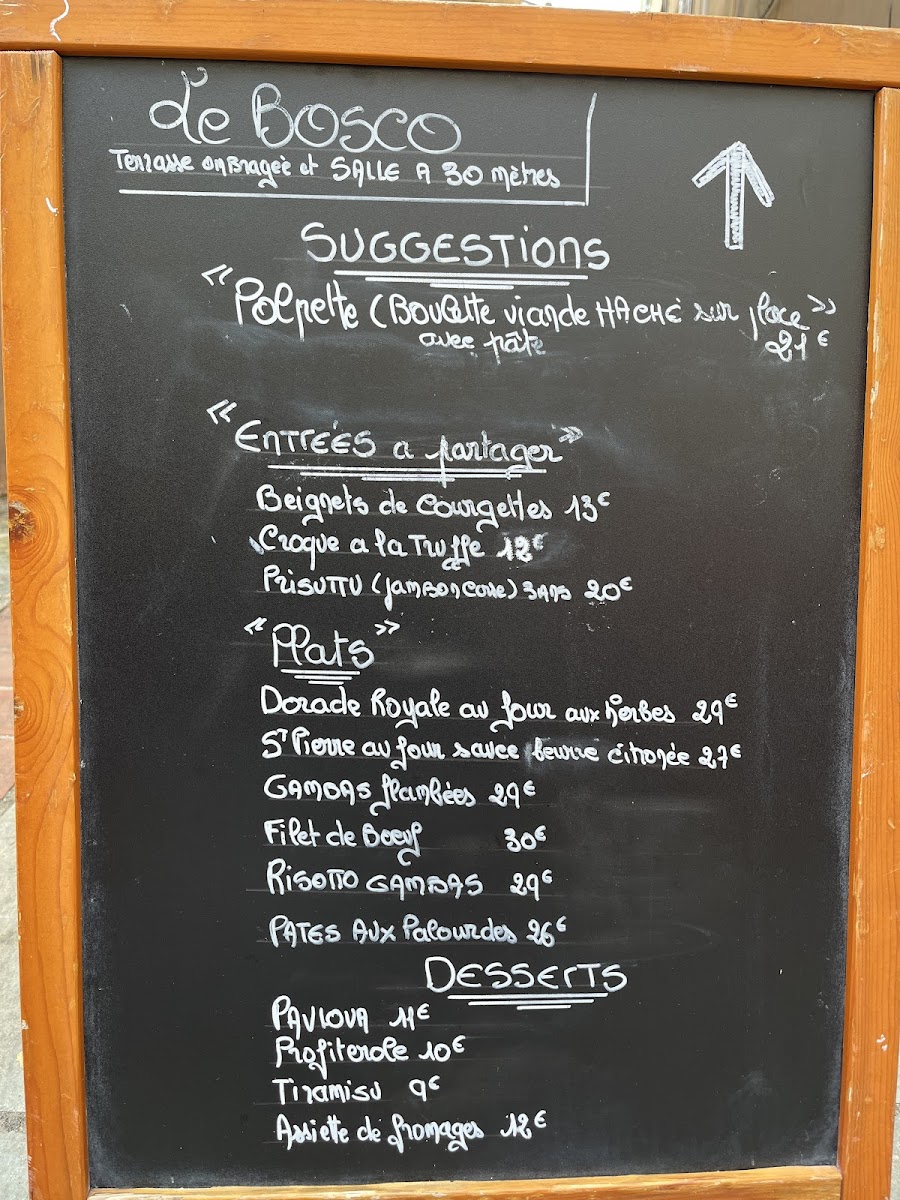 Le BOSCO
Terrasse omBragée et SALLE A 30 mètres
SUGGESTIONS
"Polpette (Boulette viande HACHÉ sur place"
avec pâte 21€
"ENTRÉES a partager"
Beignets de Courgettes 13€
Croque a la Truffe 12€
PRISUTTU (JAMBON CORSE) 3ANS 20€
"Plats"
Dorade Royale au four aux herbes 29€
St Pierre au four sauce beurre citronée 27€
GAMBAS flambées 29€
Filet de Boeuf 30€
RISOTTO GAMBAS 29€
PATES AUX Palourdes 26€
DESSERTS
PAVLOVA 11€
Profiterole 10€
Tiramisu 9€
Assiette de fromages 12€